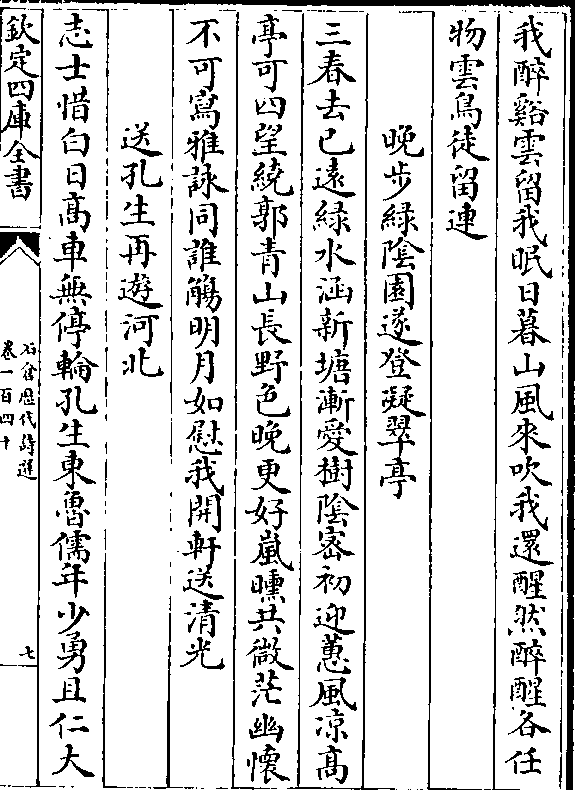 我醉谿雲留我眠日暮山風來吹我還醒然醉醒各任
物雲鳥徒留連
晚步綠陰園遂登凝翠亭
三春去已遠綠水涵新塘漸愛樹陰宻初迎蕙風凉高
亭可四望繞郭青山長野色晚更好嵐曛共微茫幽懷
不可寫雅詠同誰觴明月如慰我開軒送清光
送孔生再遊河北
志士惜白日髙車無停輪孔生東魯儒年少勇且仁大
欽定四庫全書
石倉歷代詩選
卷一百四十
七